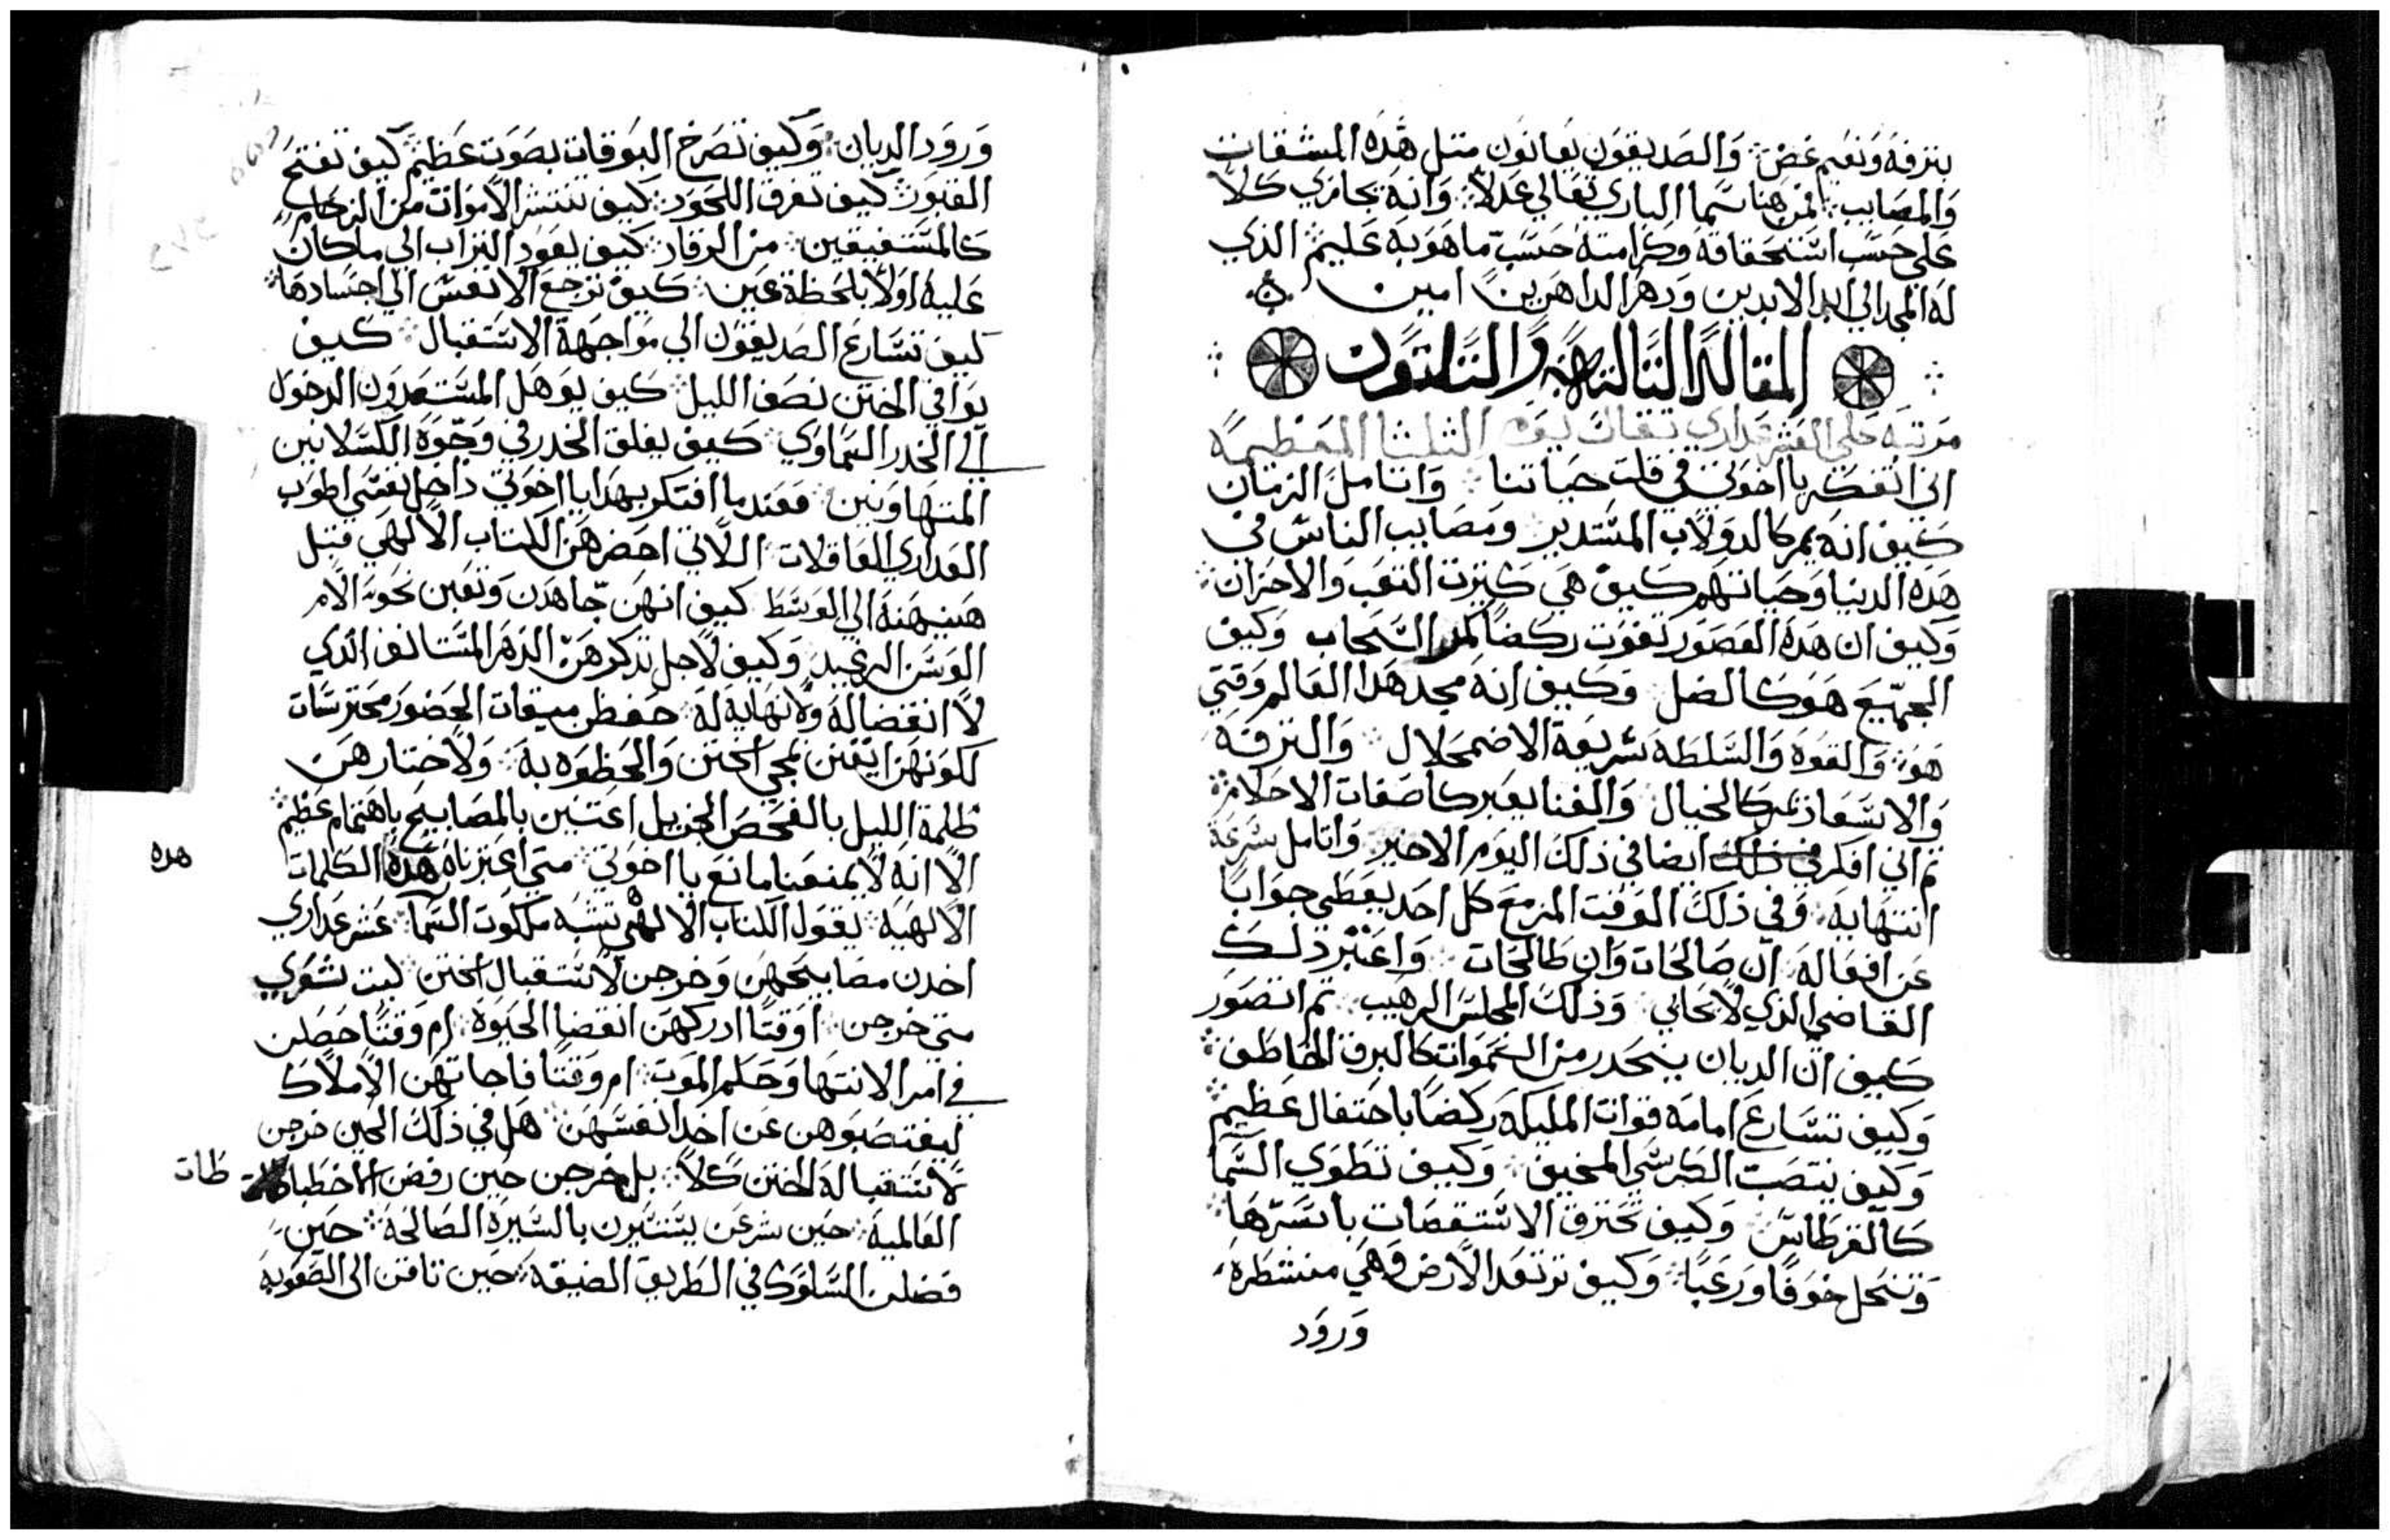 بتزفه ونعيم غض والصديقون يعانون متل هذه المشقات
والمصايب فمن هنا سما الباري تعالي عدلا وانه يجازي كلا
علي حسب استحقاقه وكرامته حسب ما هو به عليم الذي
له المجد الي ابد الابدين ودهر الداهرين امين
المقاله التالته والتلتون
مرتبه علي العشر عداري تقات يوم التلتا العظيمه
اني اتفكر يا اخوتي في قلت حياتنا واتامل الزمان
كيف انه يمر كالدولاب المستدير ومصايب الناس في
هده الدنيا وحياتهم كيف هي كتيرت التعب والاحزان
وكيف ان هده القصور تفوت ركضا كمر السحاب وكيف
الجميع هو كالضل وكيف انه مجد هدا العالم وقتي
هو والقوه والسلطه سريعة الاضمحلال والتزفه
والاسعاد يمر كالخيال والغنا يعبر كاضغات الاحلام
تم اني افكر في ذلك ايضا في ذلك اليوم الاخير واتامل سرعة
انتهايه وفي ذلك الوقت المزمع كل احد يعطي جوابا
عن افعاله ان صالحات وان طالحات واعتبر دلك
القاضي الذي لا يحابي وذلك المجلس الرهيب تم اتصور
كيف ان الديان ينحدر من السموات كالبرق الخاطف
وكيف تسارع امامه قوات المليكه ركضا باحتفال عظيم
وكيف ينتصب الكرسي المخيف وكيف تطوي السما
كالقرطاس وكيف تحترق الاستقصات باسرها
وتنحل خوفا ورعبا وكيف ترتعد الارض وهي منتظره
ورود
ورود الديان وكيف تصرخ البوقات بصوت عظيم كيف تفتح
القبور كيف تفرق اللحود كيف تنتشر الاموات من الرخام
كالمستفيقين من الرقاد كيف يعود التراب الي ما كان
عليه اولا بلحظة عين كيف ترجع الانفس الي اجسادها
كيف تسارع الصديقون الي مواجهة الاستقبال كيف
يوافي الختن نصف الليل كيف يوهل المستعدون الدخول
الي الخدر السماوي كيف يغلق الخدر في وجوه الكسلانين
المتهاونين فعند ما افتكر بهدا يا اخوتي داخل نفسي اطوب
العداري العاقلات اللاتي احضرهن الكتاب الالهي قبل
هنيهنة الي الوسط كيف انهن جاهدن وتعبن نحو الامر
الوسن الرغيد وكيف لاجل تذكرهن الدهر المستانف الذي
لا انقضا له ولا نهاية له حفظن ميقات الحضور محترسات
لكونهن ايقن بمجي الختن والحظوه به ولاختبارهن
ظلمة الليل بالفحص الجزيل اعتنين بالمصابيح باهتمام عظيم
الا انه لا يمنعنا مانع يا اخوتي متي اعتبرنا هده الكلمات
هده
الالهيه يقول الكتاب الالهي تشبه ملكوت السما عشر عداري
اخدن مصابيحهن وخرجن لاستقبال الختن ليت شعري
متي خرجن اوقتا ادركهن انقضا الحيوه ام وقتا حصلن
في امر الانتها وحلم الموت ام وقتا فاجاتهن الاملاك
ليغتصبوهن عن اخد انفسهن هل في ذلك الحين خرجن
لاستقباله الختن كلا بل خرجن حين رفضن
طات
العالميه حين شرعن يستسيرن بالسيره الصالحه حين
فضلن السلوك في الطريق الضيقه حين تاقن الي الصعوبه